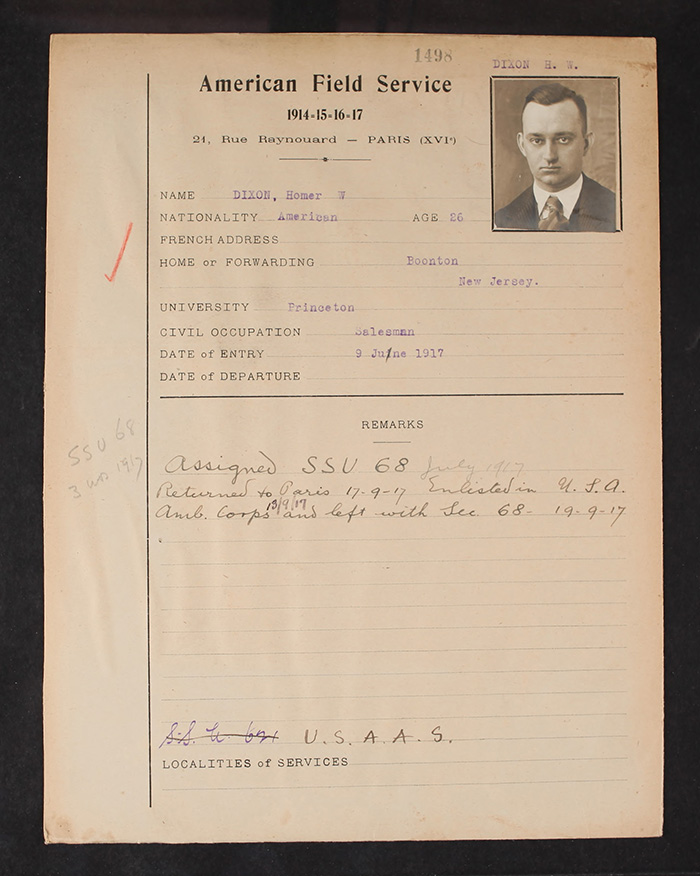 1498
DIXON H. W.
American Field Service
1914=15=16=17
21, Rue Raynouard — PARIS (XVIe)
NAME DIXON, Homer W
NATIONALITY American AGE 26
FRENCH ADDRESS
HOME or FORWARDING Boonton
New Jersey.
UNIVERSITY Princeton
CIVIL OCCUPATION Salesman
DATE of ENTRY 9 June 1917
DATE of DEPARTURE
REMARKS
SSU 68
3 mos 1917
Assigned SSU 68 July 1917
Returned to Paris 17-9-17 Enlisted in U.S.A.
Amb. Corps 13/9/17 and left with Sec 68- 19-9-17
S.S.U. U.S.A.A.S.
LOCALITIES of SERVICES